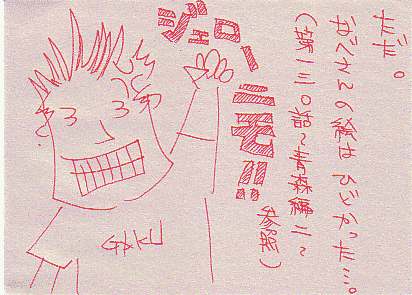 だ〻。
おくさんの絵はひどかった…。
(第一三〇話〜青森編二〜
参照)
ジェロー
ニモ!!